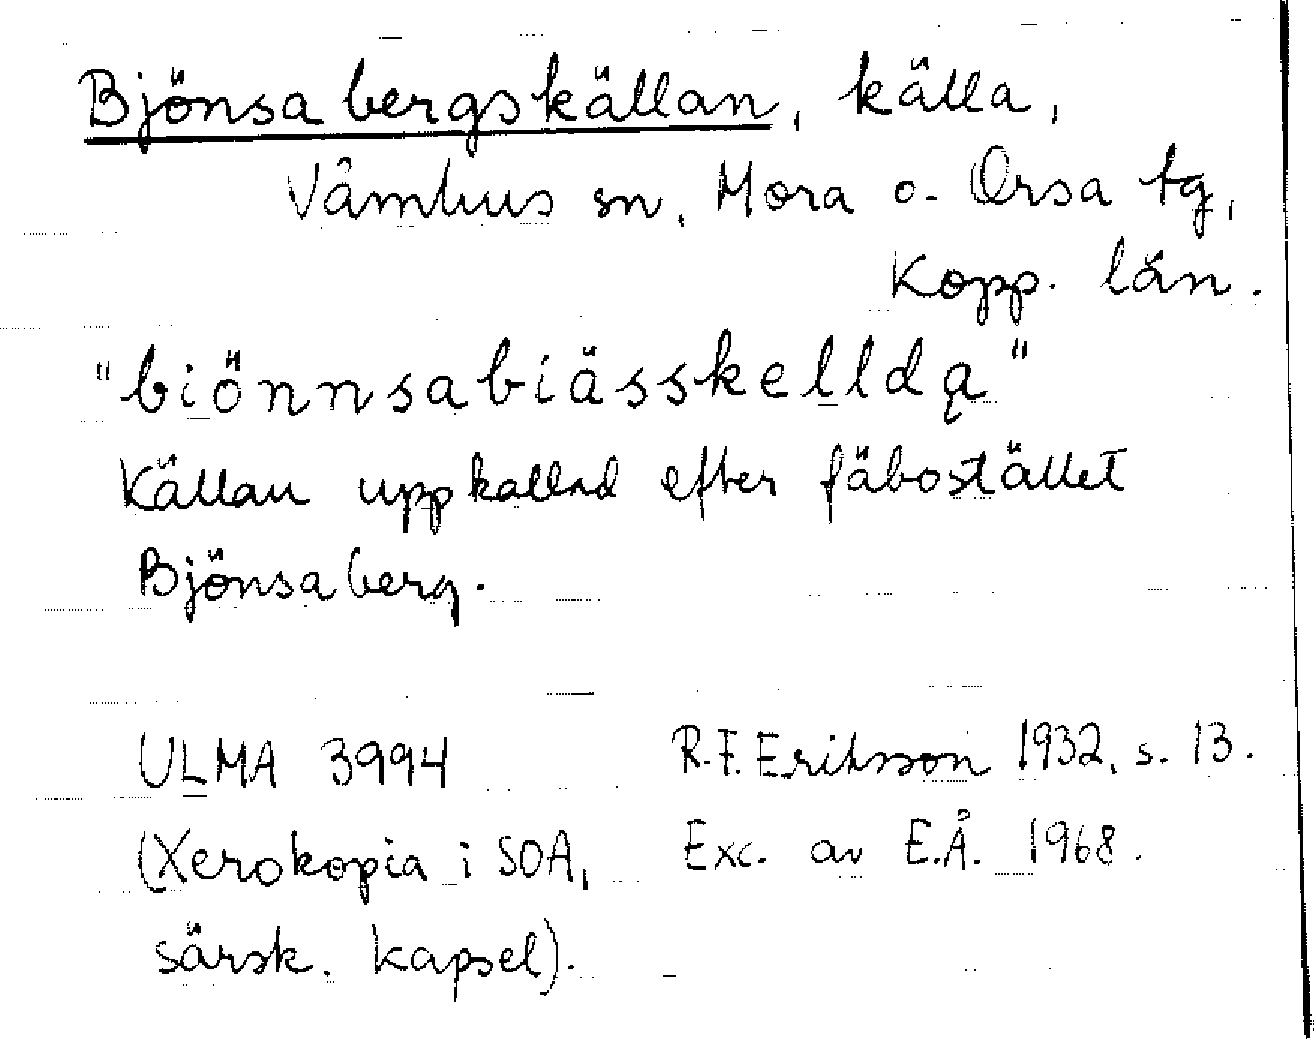 Bjönsabergskällan, källa,
Våmhus sn, Mora o. Orsa tg,
Kopp. län.
"biönnsabiässkelldą"
Källan uppkallad efter fäbostället
Bjönsaberg.
ULMA 3994 R.F. Eriksson 1932, s. 13.
(Xerokopia i SOA, Exc. av E.Å. 1968.
särsk. kapsel).